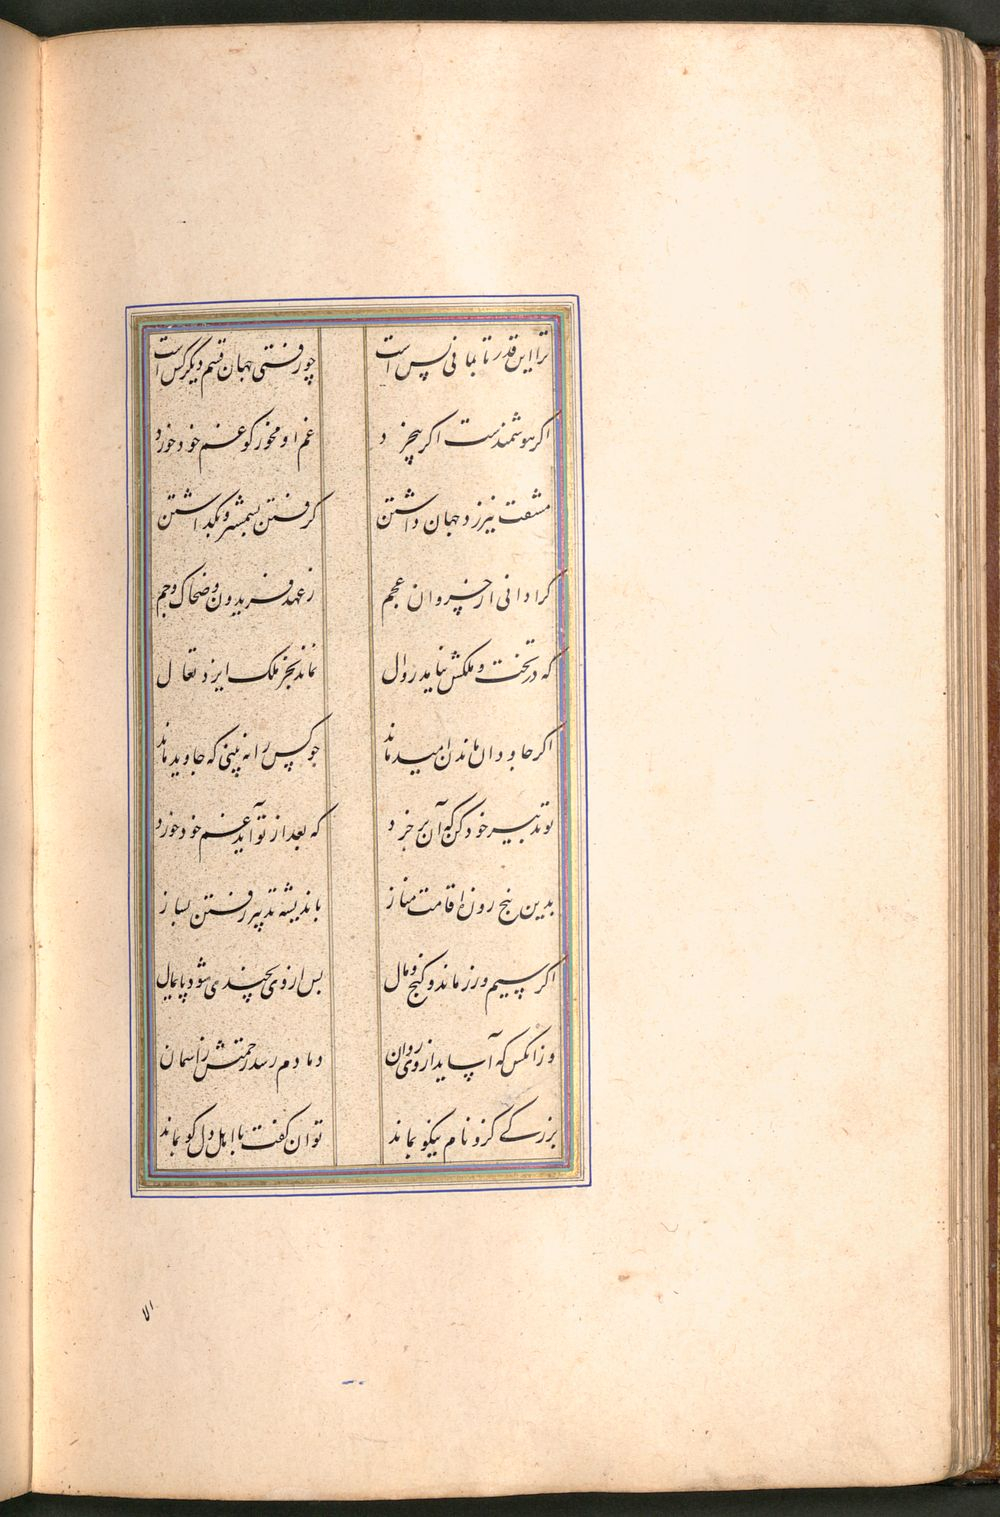 ترا این قدر تا بمانی بس است
چو رفتی جهان قسم دیگر کس است
اگر هوشمندست اگر بیخرد
غم او مخور کو غم خود خورد
مشقت نیرزد جهان داشتن
گرفتن بشمشیر و بگذاشتن
کرا دانی از خسروان عجم
ز عهد فریدون و ضحاک و جم
که در تخت و ملکش نیامد زوال
نماند بجز ملک ایزد تعال
اگر جاودان ماندن امید ماند
چو کس را نه بینی که جاوید ماند
تو تدبیر خود کن که آن پر خرد
که بعد از تو آید غم خود خورد
بدین پنج روزه اقامت مناز
باندیشه تدبیر رفتن بساز
اگر سیم و زر ماند و گنج و مال
پس از وی بچندی شود پایمال
وزانکس که آساید از وی روان
دمادم رسد رحمتش ز آسمان
بزرگی کزو نام نیکو بماند
توان گفت با اهل دل کو بماند